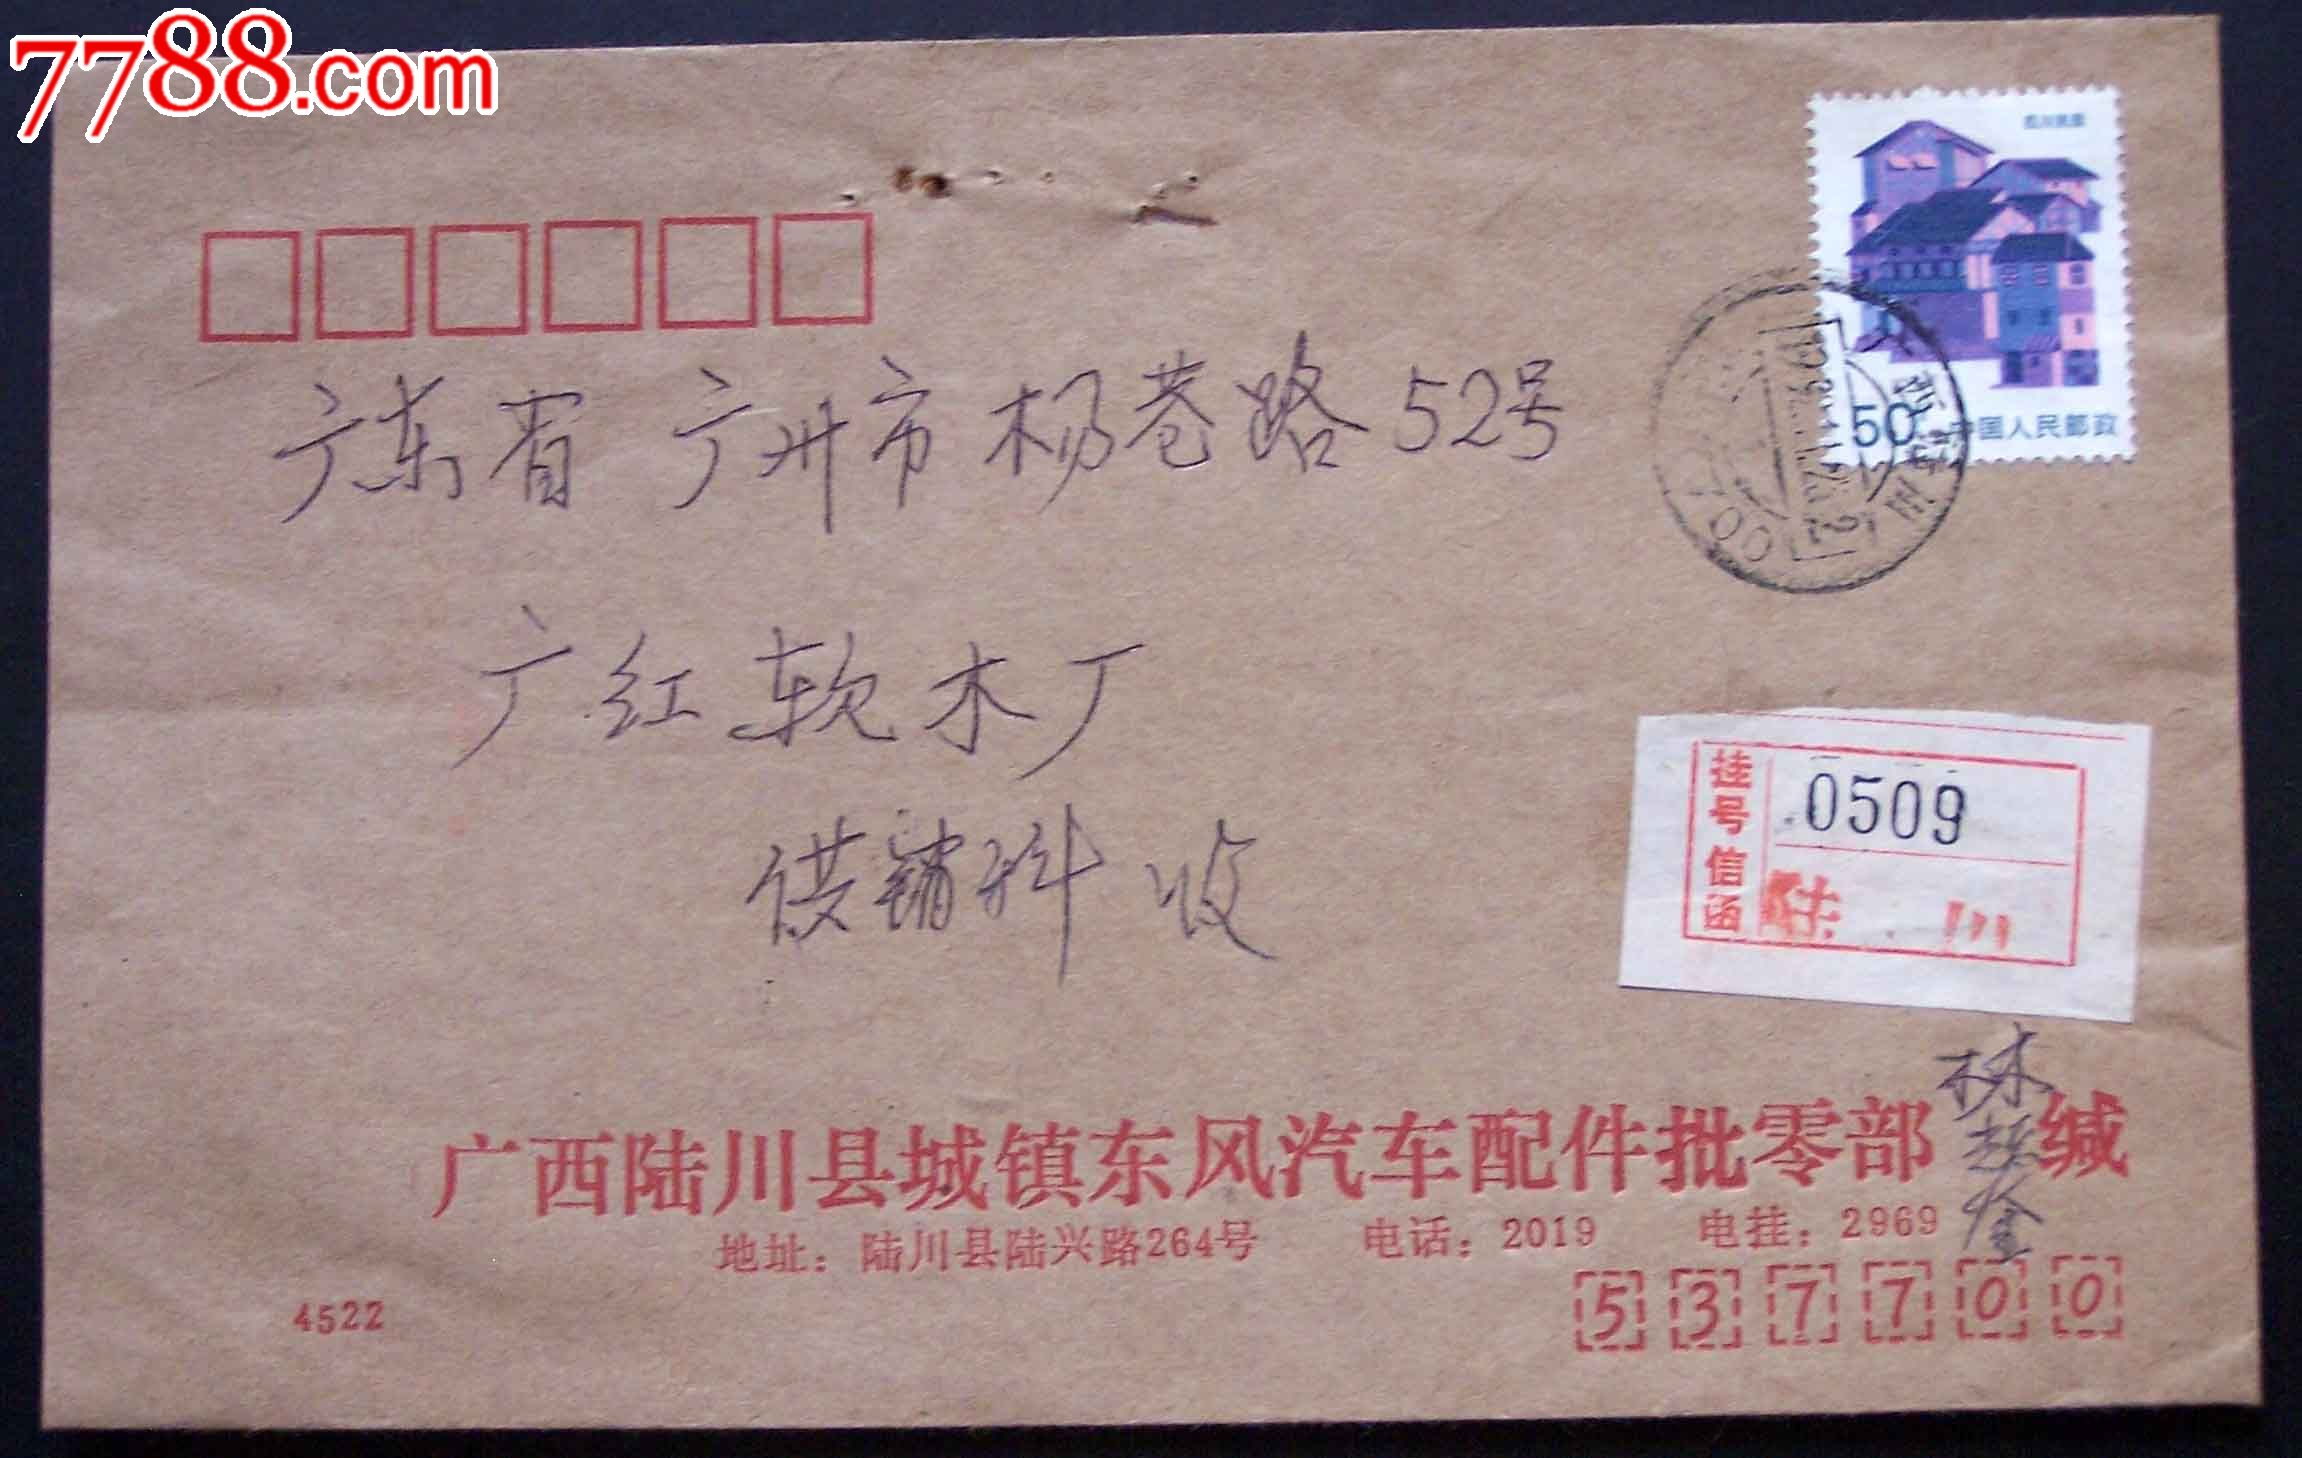 7788.com
四川民居
50 中国人民邮政
广西陆川
广东省 广州市 杨巷路 52号
广红软木厂
供销科 收
挂号信函
0509
陆川
林
广西陆川县城镇东风汽车配件批零部 缄
地址：陆川县陆兴路264号 电话：2019 电挂：2969
4522
537700